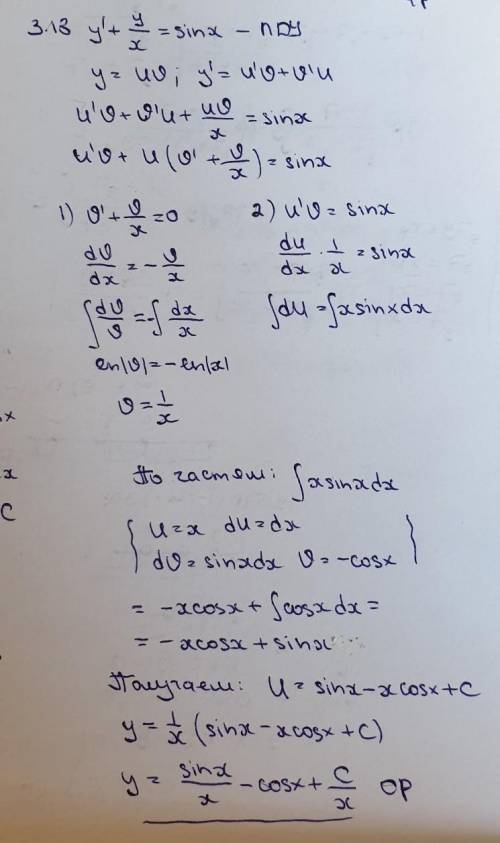 3.13 y' + y/x = sinx – ЛДУ
y = uϑ; y' = u'ϑ + ϑ'u
u'ϑ + ϑ'u + uϑ/x = sinx
u'ϑ + u(ϑ' + ϑ/x) = sinx
1) ϑ' + ϑ/x = 0
dϑ/dx = -ϑ/x
∫dϑ/ϑ = -∫dx/x
ln|ϑ| = -ln|x|
ϑ = 1/x
2) u'ϑ = sinx
du/dx · 1/x = sinx
∫du = ∫x sinx dx
x
x
C
По частям: ∫x sinx dx
{ u = x du = dx
dϑ = sinx dx ϑ = -cosx }
= -x cosx + ∫cosx dx =
= -x cosx + sinx
Получаем: u = sinx - x cosx + C
y = 1/x (sinx - x cosx + C)
y = sinx/x - cosx + C/x ОР